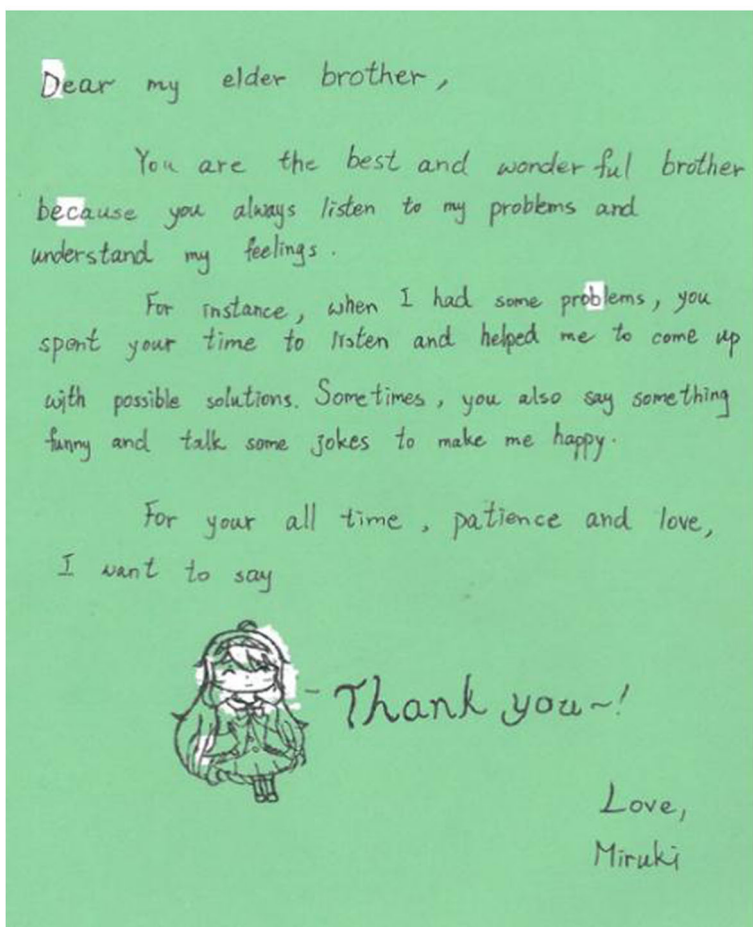 Dear my elder brother,
You are the best and wonderful brother
because you always listen to my problems and
understand my feelings.
For instance, when I had some problems, you
spent your time to listen and helped me to come up
with possible solutions. Sometimes, you also say something
funny and talk some jokes to make me happy.
For your all time, patience and love,
I want to say
- Thank you~!
Love,
Miruki